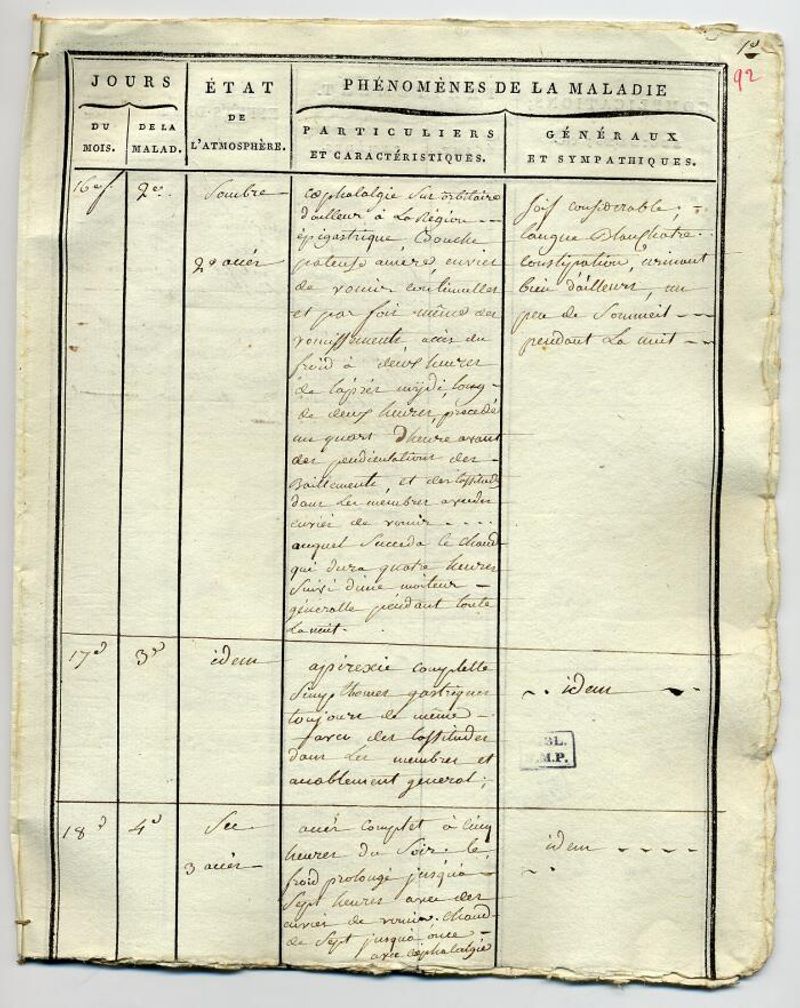 92
JOURS
ÉTAT
PHÉNOMÈNES DE LA MALADIE
DU
MOIS.
DE LA
MALAD.
DE
L'ATMOSPHÈRE.
PARTICULIERS
ET CARACTÉRISTIQUES.
GÉNÉRAUX
ET SYMPATHIQUES.
16e
2e
Sombre
2e accès
cœphalalgie sur orbitaire
d'ailleur à La Région
épigastrique Bouche
pateuse amère, envies
de vomir continuelles
et par fois même des
vomissements, accès du
froid à deux heures
de l'après mijdi, long
de deux heures, précédé
un quart d'heure avant
des pendiculations des
Baillements, et des lassitudes
dans Les membres avec des
envies de vomir
auquel succeda le chaud
qui dura quatre heures
suivi d'une moiteur
généralle pendant toute
La nuit.
soif considerable,
langue Blanchatre.
constipation, urinant
bien d'ailleurs, un
peu de Sommeil
pendant La nuit
17e
3e
idem
apirexie complette
Simpthomes gastriques
toujours de même
avec des Lassitudes
dans Les membres et
accablement general;
idem
BL.
M.P.
18e
4e
Sec
3 accès
accès complet à Cinq
heures du Soir. le
froid prolongé jusqu'à
Sept heures avec des
envies de vomir. chaud
de Sept jusqu'à onze
avec cœphalalgie
idem